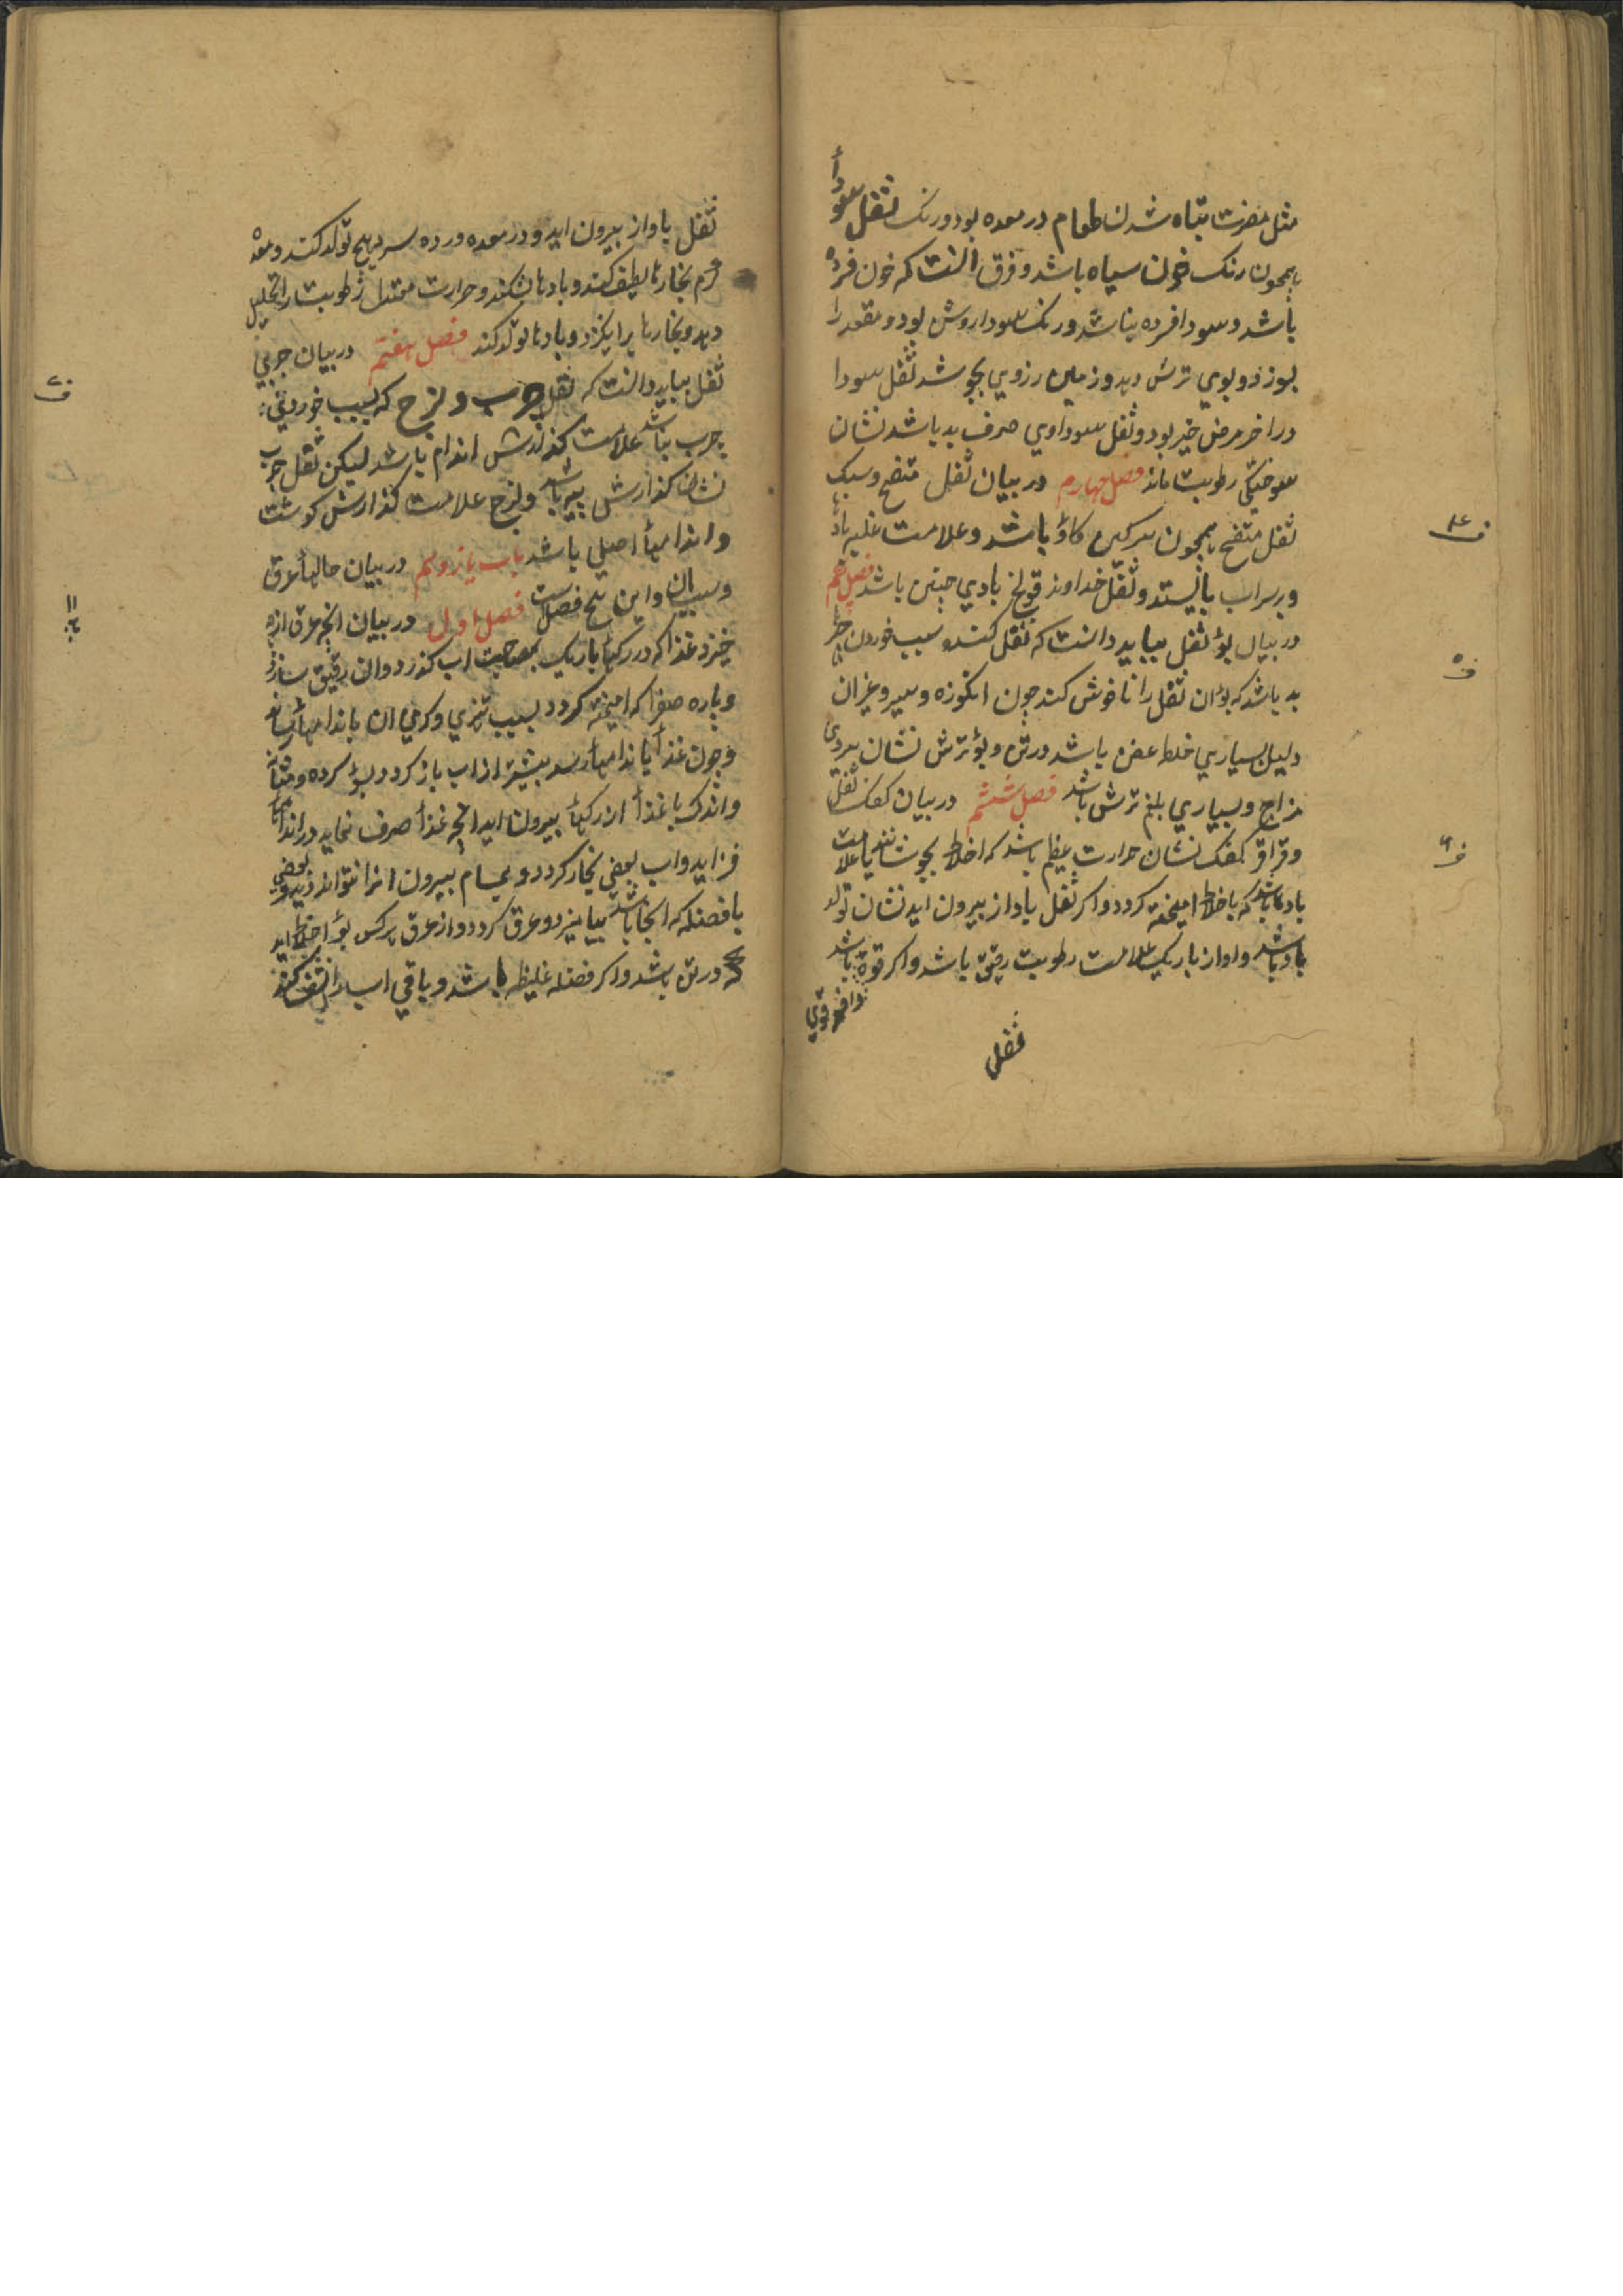 مثل مضرت تباه شدن طعام در معده بود ورنک ثفل سودأ
بهمچون رنک خون سیاه باشد وفرق انست که خون فسرده
باشد وسودا فسرده نباشد ورنک سودا روشن بود ومقعد را
بسوزد وبوی ترش دهد وزمین ازوی بجوشد ثفل سودا
در اخر مرض خیر بود وثفل سوداوی صرف بد باشد نشان
سوختکی رطوبت ماند فصل چهارم در بیان ثفل منتفخ وسبک
ثفل منتفخ بهمچون سرکین کاؤ باشد وعلامت غلبه بادها
وبر سر اب بایستد وثفل خداوند قولنج بادی چنین باشد فصل پنجم
در بیان بؤ ثفل بباید دانست که ثفل کنده بسبب خوردن چیز
بد باشد که بؤ ان ثفل را ناخوش کند چون انکوزه وسیر وغیر ان
دلیل بسیاری خلط عفن باشد در تن وبؤ ترش نشان سردی
مزاج وبسیاری بلغم ترش باشد فصل ششم در بیان کفک ثفل
وقراقر کفک نشان حرارت عظیم باشد که اخلاط بجوشاند یا علامت
بادها باشد که باخلاط امیخته کردد واکر ثفل باواز بیرون اید نشان تولد
باد باشد واواز باریک علامت رطوبت رقیق باشد واکر قوة باشد
ثفل
ثفل باواز بیرون اید ودر معده ورده سرد هیچ تولد کند ومعده
کرم بخارها لطیف کند وبادها بشکند وحرارت معتدل رطوبت را تحلیل
دهد وبخارها برانکیزد وبادها تولد کند فصل هفتم در بیان چربی
ثفل بباید دانست که ثفل چرب ولزج که بسبب خوردنی
چرب نباشد علامت کذارش اندام باشد لیکن ثفل چرب
نشان کذارش پیه باشد ولزج علامت کذارش کوشت
واندامهأ اصلی باشد باب یازدهم در بیان حالهأ عرق
وسبب ان واین پنج فصل است فصل اول در بیان انچه عرق ازو
خیزد غذا که در رکهأ باریک بمصاحبت اب کذرد وان رقیق سازد
وپاره صفرا که امیخته کردد بسبب تیزی وکرمی ان باندامهأ رساند
وچون غذأ باندامهأ رسد بیشتر از اب باز کردد بسؤ کرده ومثانه
واندک با غذأ از رکهأ بیرون اید انچه غذأ صرف نماید در اندامهأ
فزاید واب بعضی بخار کردد وبمسام بیرون اید وبعضی
با فضله که انجا باشد بیامیزد وعرق کردد واز عرق هر کس بؤ اخلاط اید
که در تن باشد واکر فضله غلیظ باشد وباقی اب
ف ۴
ف ۵
ف ۶
ف ۷
باب ۱۱